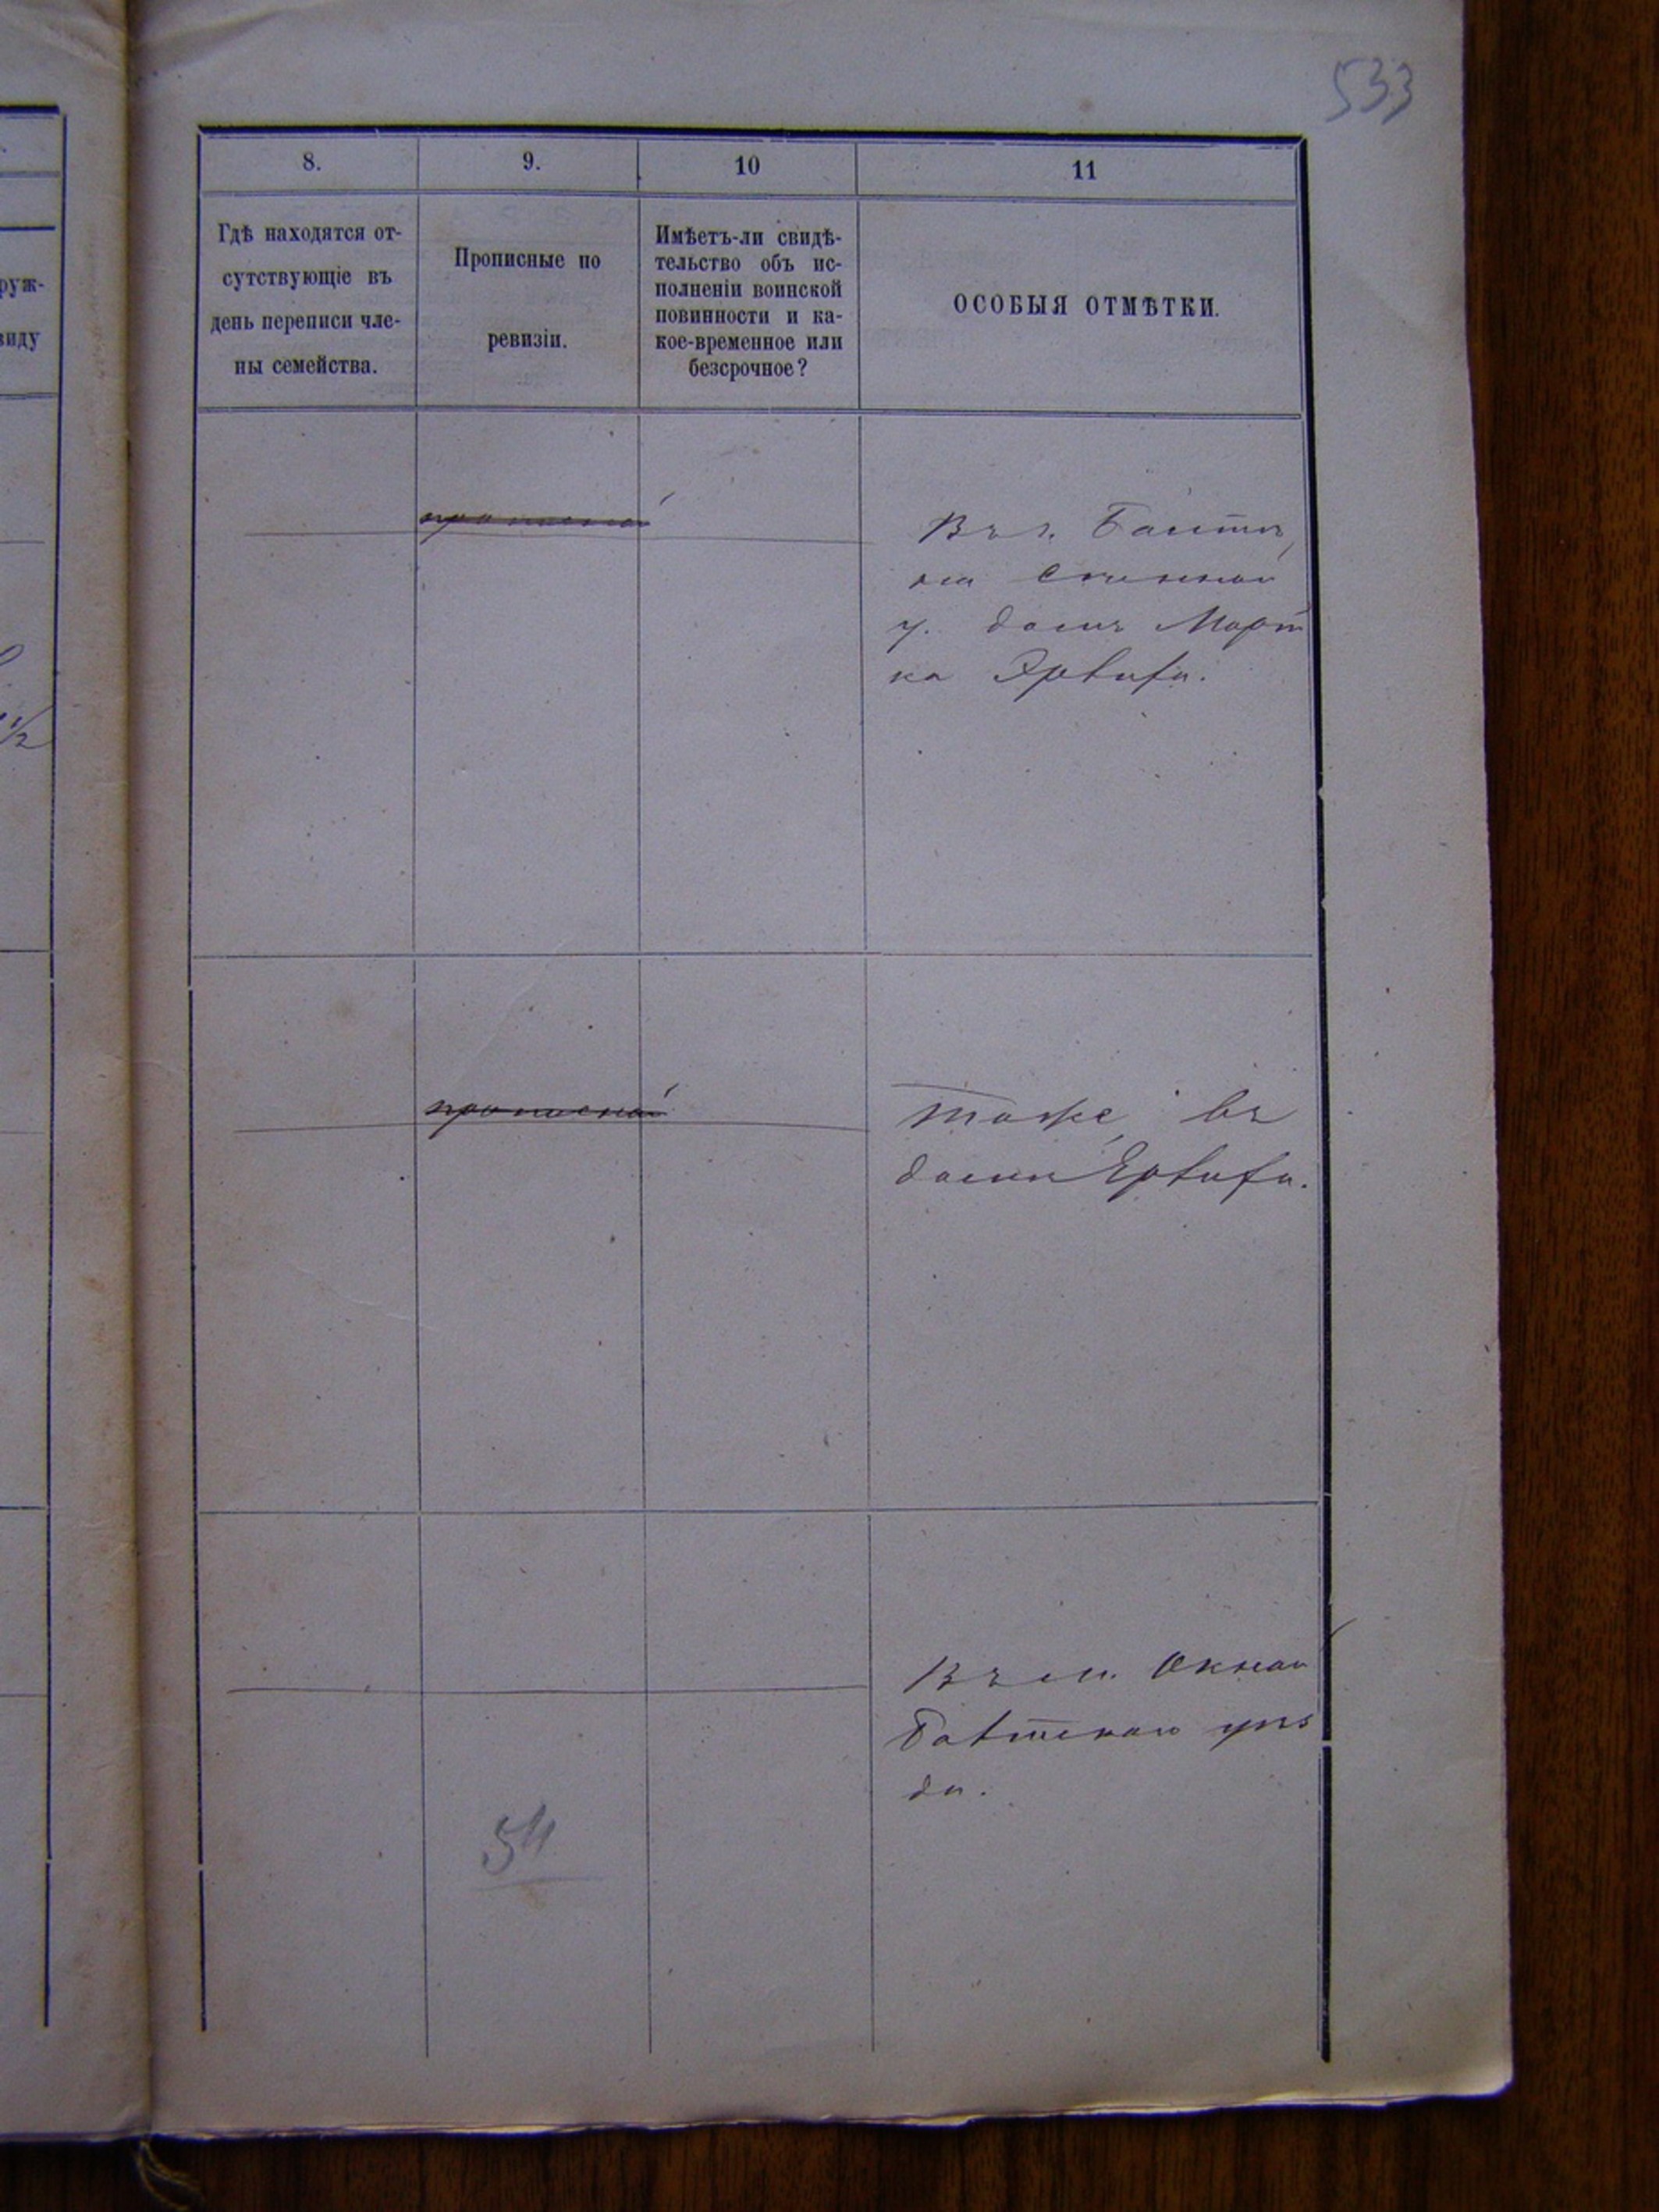 533
8.
9.
10
11
Гдѣ находятся от-
сутствующіе въ
день переписи чле-
ны семейства.
Прописные по
ревизіи.
Имѣетъ-ли свидѣ-
тельство объ ис-
полненіи воинской
повинности и ка-
кое-временное или
безсрочное?
ОСОБЫЯ ОТМѢТКИ.
руж-
виду
1/2
прописной
Въ г. Балтѣ,
на Сѣнной
у. домъ Морт
ка
прописной
тоже, въ
домѣ
Въ м. Окнах
Балтскаго уѣз
да.
54